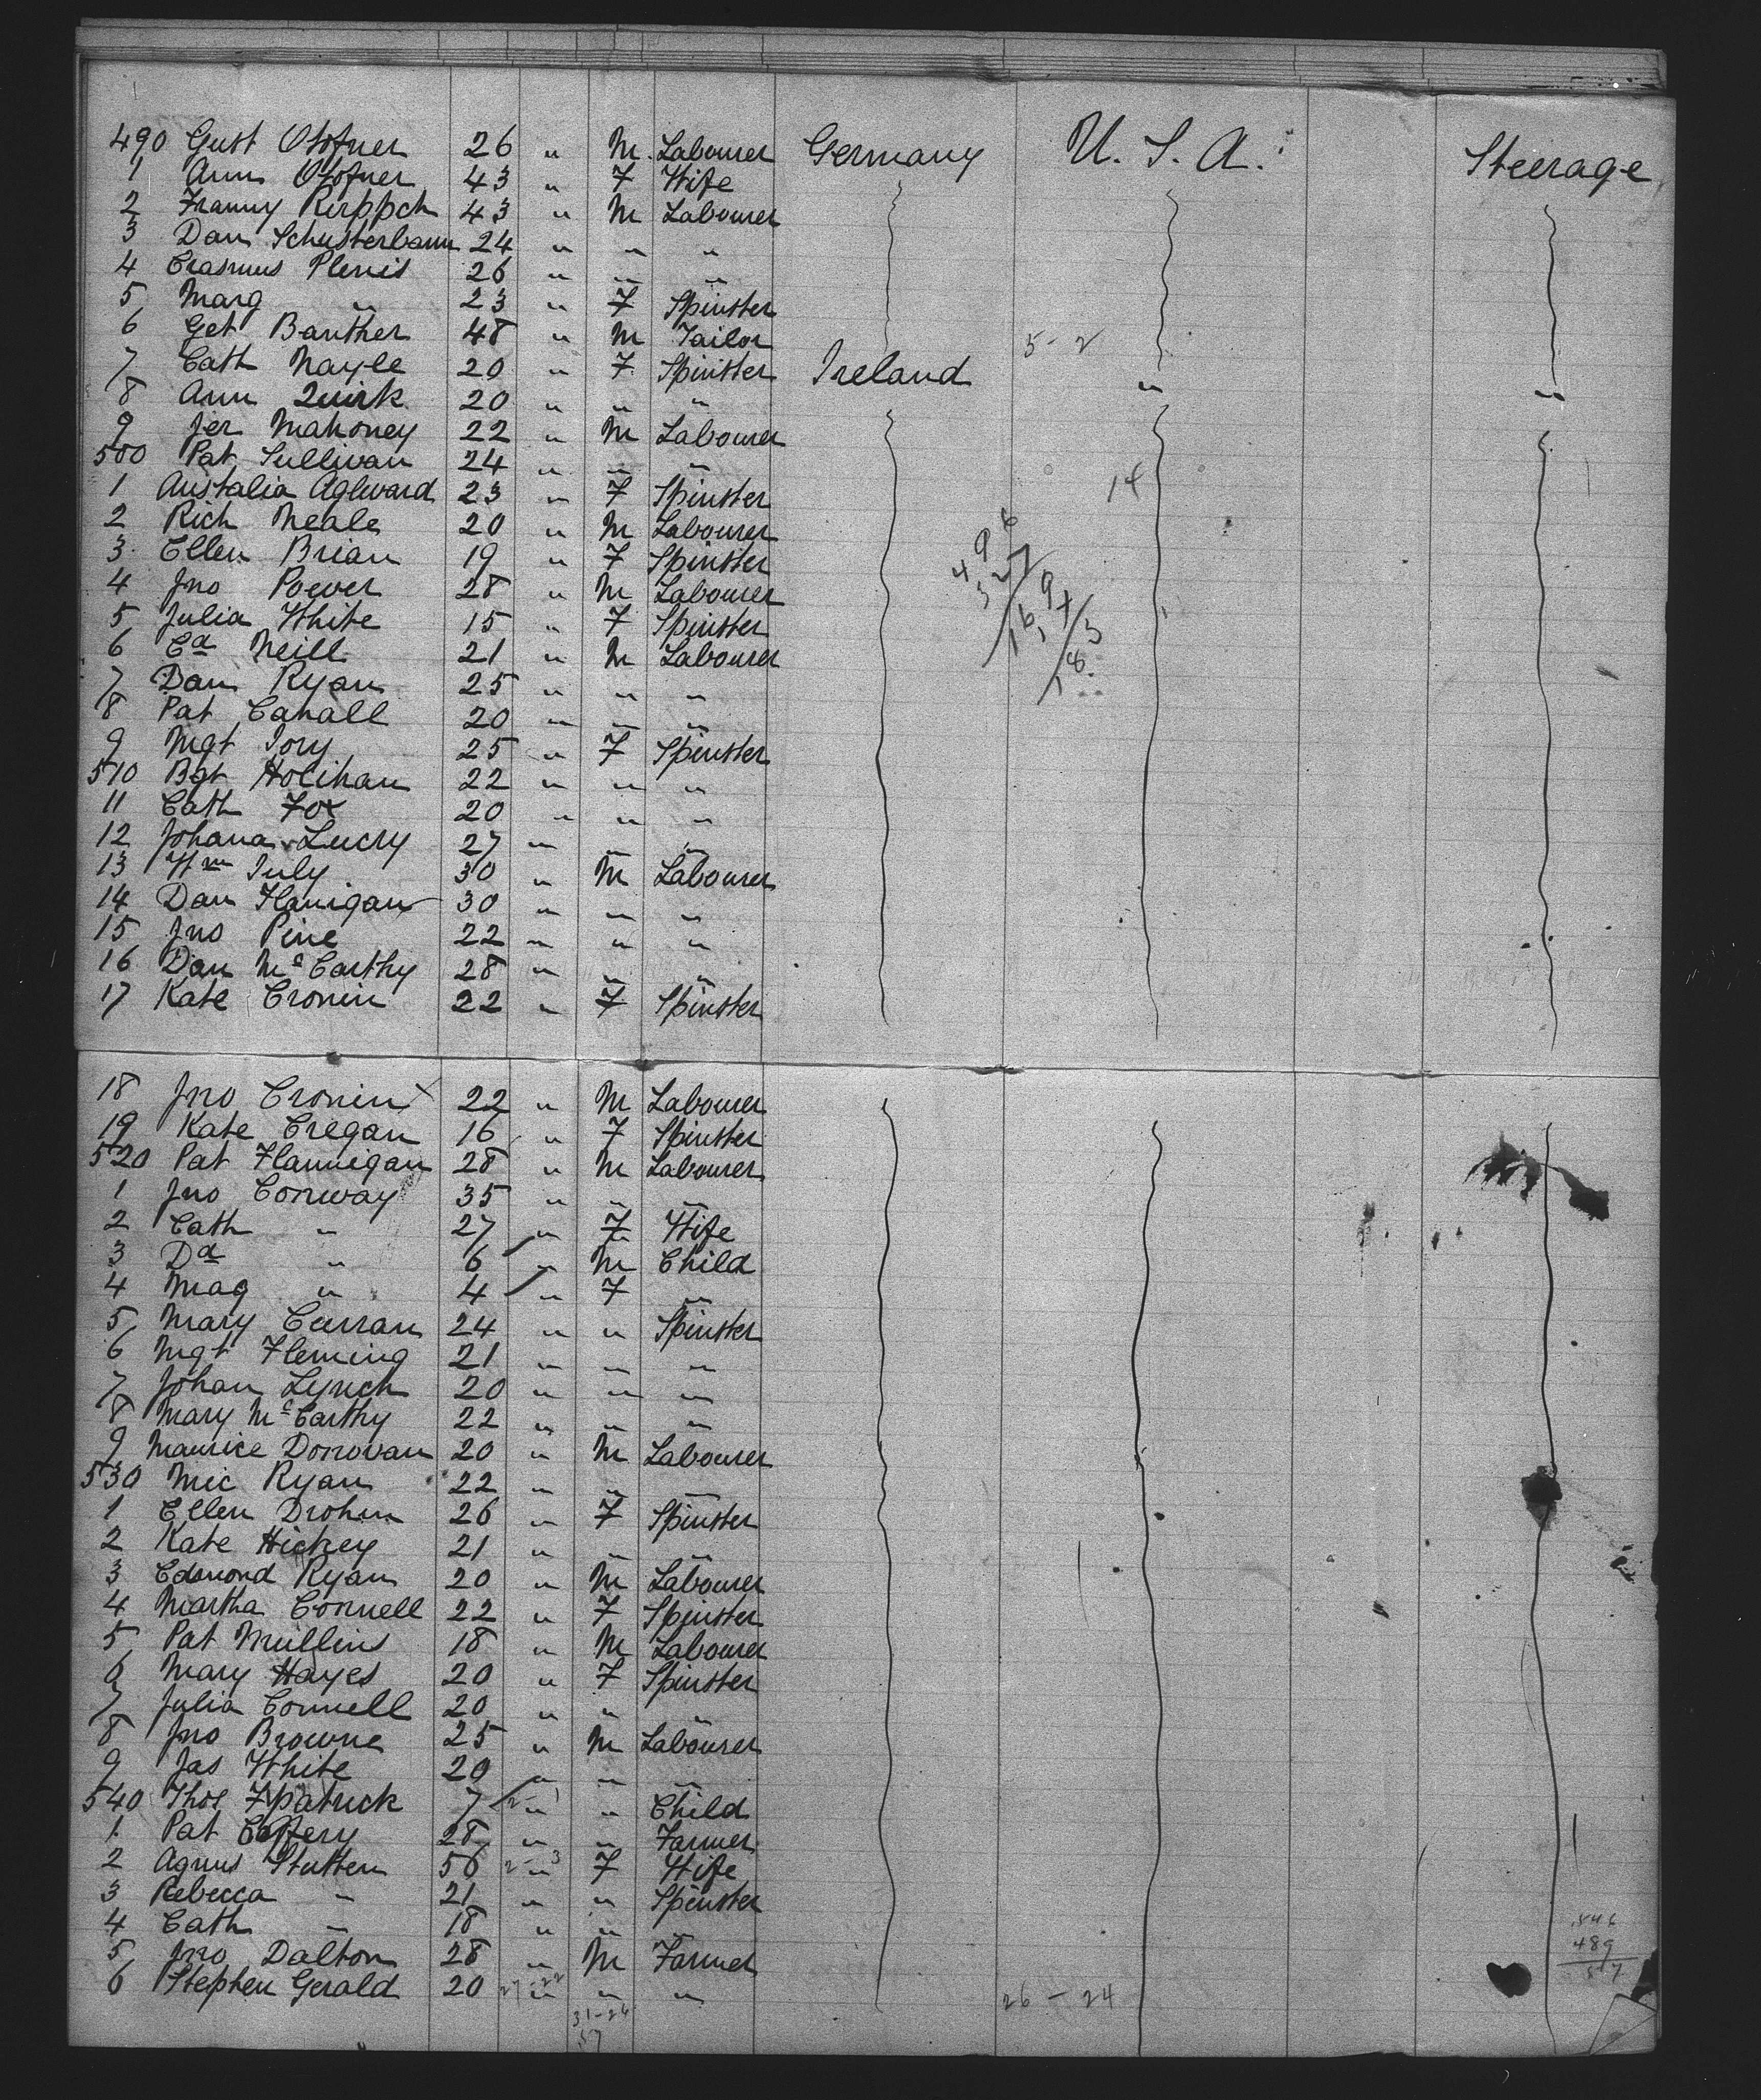 490 Gust Otofner 26 " M. Labourer Germany U. S. A. Steerage
1 Ann Otofner 43 " F Wife
2 Franny Kirppch 43 " M Labourer
3 Dan Schusterbaum 24 " " "
4 Erasmus Plenis 26 " " "
5 Marg " 23 " F Spinster
6 Get Banther 48 " M Tailor 5-2
7 Cath Nayle 20 " F Spinster Ireland " "
8 Ann Quirk 20 " " "
9 Jer Mahoney 22 " M Labourer
500 Pat Sullivan 24 " " "
1 Austalia Aglward 23 " F Spinster 14
2 Rich Neale 20 " M Labourer
3 Ellen Brian 19 " F Spinster
4 Jno Power 28 " M Labourer
5 Julia White 15 " F Spinster
6 Ed Neill 21 " M Labourer
7 Dan Ryan 25 " " "
8 Pat Cahall 20 " " "
9 Mgt Tory 25 " F Spinster
510 Bgt Holihan 22 " " "
11 Cath Fox 20 " " "
12 Johana Lucry 27 " " "
13 Wm July 30 " M Labourer
14 Dan Flanigan 30 " " "
15 Jno Pine 22 " " "
16 Dan McCarthy 28 " " "
17 Kate Cronin 22 " F Spinster
18 Jno Cronin 22 " M Labourer
19 Kate Cregan 16 " F Spinster
520 Pat Flannigan 28 " M Labourer
1 Jno Conway 35 " " "
2 Cath " 27 " F Wife
3 Dd " 6 " M Child
4 Mag " 4 " F "
5 Mary Curran 24 " " Spinster
6 Mgt Fleming 21 " " "
7 Johan Lynch 20 " " "
8 Mary McCarthy 22 " " "
9 Maurice Donovan 20 " M Labourer
530 Mic Ryan 22 " " "
1 Ellen Drohun 26 " F Spinster
2 Kate Hickey 21 " " "
3 Edmond Ryan 20 " M Labourer
4 Martha Connell 22 " F Spinster
5 Pat Mullins 18 " M Labourer
6 Mary Hayes 20 " F Spinster
7 Julia Connell 20 " " "
8 Jno Browne 25 " M Labourer
9 Jas White 20 " " "
540 Thos Fpatrick 7 " " Child
1 Pat Caffery 28 " " Farmer
2 Agnus Stutten 56 " F Wife
3 Rebecca " 21 " " Spinster
4 Cath " 18 " " "
5 Jno Dalton 28 " M Farmer
6 Stephen Gerald 20 " " " 26-24
546
489
57
31-26
57